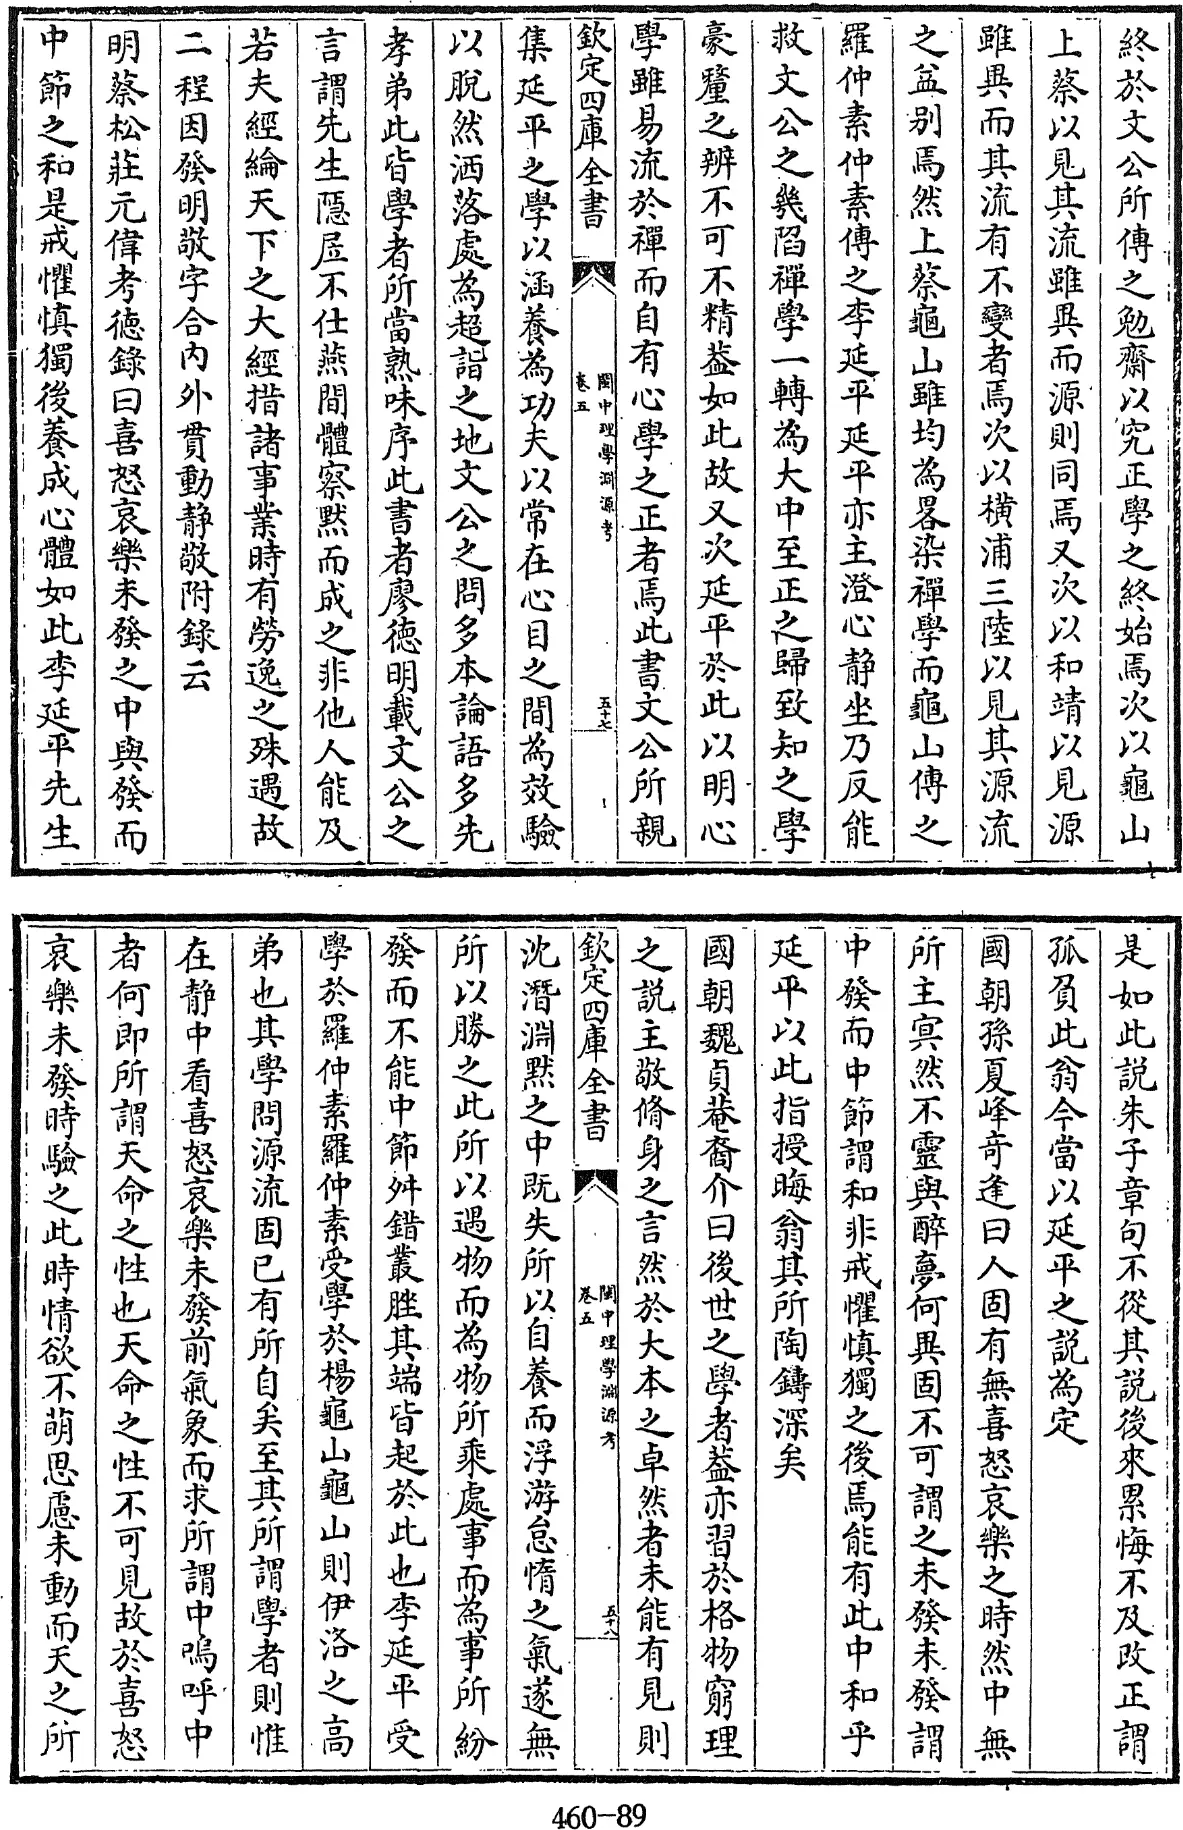 終於文公所傳之勉齋以究正學之終始焉次以龜山
上蔡以見其流雖異而源則同焉又次以和靖以見源
雖異而其流有不變者焉次以橫浦三陸以見其源流
之益别焉然上蔡龜山雖均為畧染禪學而龜山傳之
羅仲素仲素傳之李延平延平亦主澄心靜坐乃反能
救文公之幾陷禪學一轉為大中至正之歸致知之學
豪釐之辨不可不精葢如此故又次延平於此以明心
學雖易流於禪而自有心學之正者焉此書文公所親
欽定四庫全書
閩中理學淵源考
卷五
五十七
集延平之學以涵養為功夫以常在心目之間為效驗
以脫然洒落處為超詣之地文公之問多本論語多先
孝弟此皆學者所當熟味序此書者廖德明載文公之
言謂先生隱居不仕燕間體察默而成之非他人能及
若夫經綸天下之大經措諸事業時有勞逸之殊遇故
二程因發明敬字合内外貫動靜敬附錄云
明蔡松莊元偉考德錄曰喜怒哀樂未發之中與發而
中節之和是戒懼慎獨後養成心體如此李延平先生
是如此説朱子章句不從其説後來累悔不及改正謂
孤負此翁今當以延平之説為定
國朝孫夏峰竒逢曰人固有無喜怒哀樂之時然中無
所主冥然不靈與醉夢何異固不可謂之未發未發謂
中發而中節謂和非戒懼慎獨之後焉能有此中和乎
延平以此指授晦翁其所陶鑄深矣
國朝魏貞菴裔介曰後世之學者葢亦習於格物窮理
之説主敬脩身之言然於大本之卓然者未能有見則
欽定四庫全書
閩中理學淵源考
卷五
五十八
沈潛淵黙之中既失所以自養而浮游怠惰之氣遂無
所以勝之此所以遇物而為物所乘處事而為事所紛
發而不能中節舛錯叢脞其端皆起於此也李延平受
學於羅仲素羅仲素受學於楊龜山龜山則伊洛之高
弟也其學問源流固已有所自矣至其所謂學者則惟
在靜中看喜怒哀樂未發前氣象而求所謂中嗚呼中
者何即所謂天命之性也天命之性不可見故於喜怒
哀樂未發時驗之此時情欲不萌思慮未動而天之所
460-89